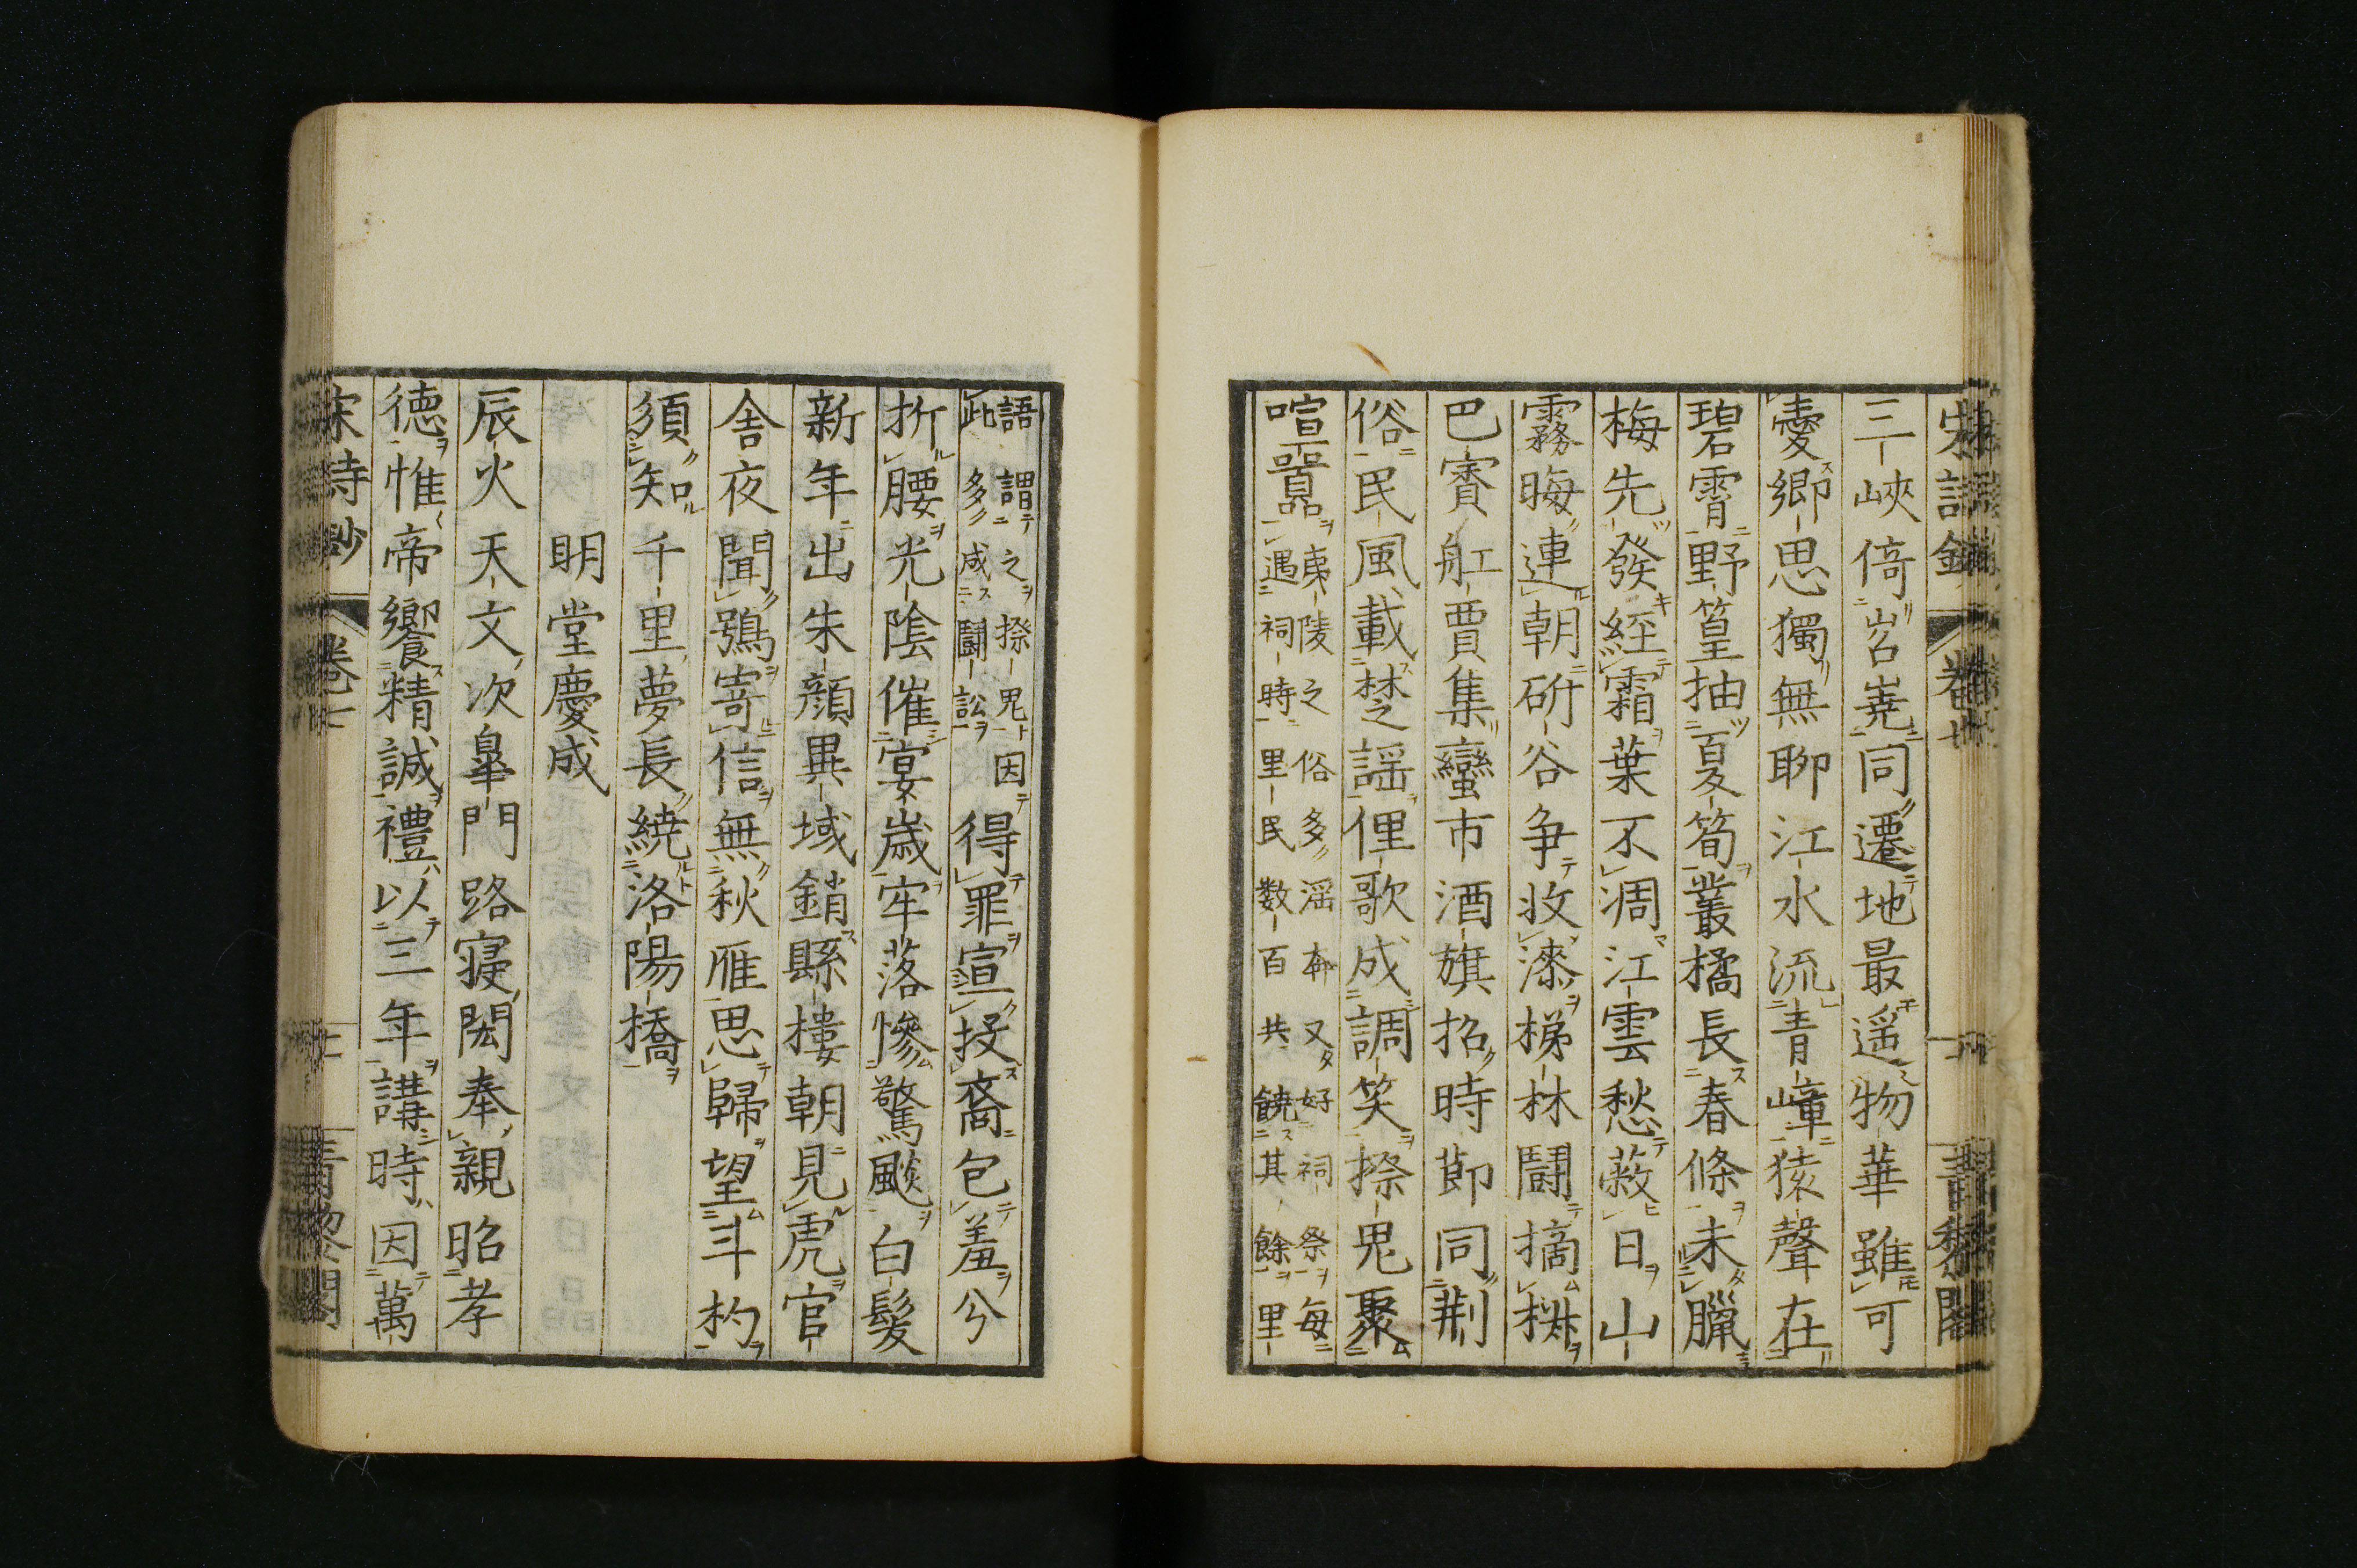 三峽倚岧嶤同遷地最遥物華雖可
愛鄉思獨無聊江水流青嶂猿聲在
碧霄野篁抽夏筍叢橘長春條未臘
梅先發經霜葉不凋江雲愁蔽日山
霧晦連朝斫谷争收漆梯林鬭摘椒
巴賨舡賈集蠻市酒旗招時節同荆
俗民風載楚謡俚歌成調笑摖鬼聚
喧囂夷陵之俗多淫奔又好祠祭每
遇祠時里民数百共饒其餘里
語謂之摖鬼因
此多成鬭訟得罪宣投裔包羞分
折腰光陰催宴歲牢落慘驚飈白髮
新年出朱顔異域銷縣樓朝見虎官
舎夜聞鴞寄信無秋雁思歸望斗杓
須知千里夢長繞洛陽橋
明堂慶成
辰火天文次皐門路寢閎奉親昭孝
德惟帝饗精誠禮以三年講時因萬
宋詩鈔 卷七 青黎閣